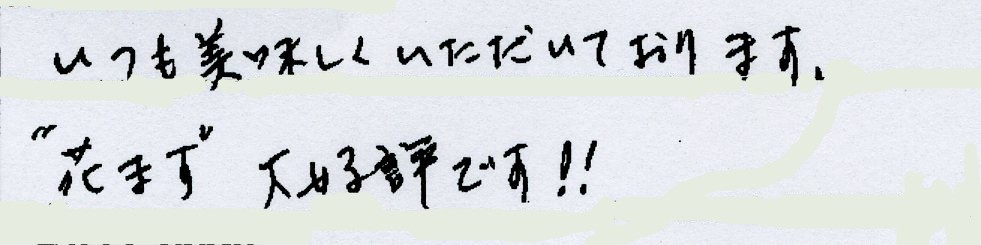 いつも美味しくいただいております。
"花ます" 大好評です!!